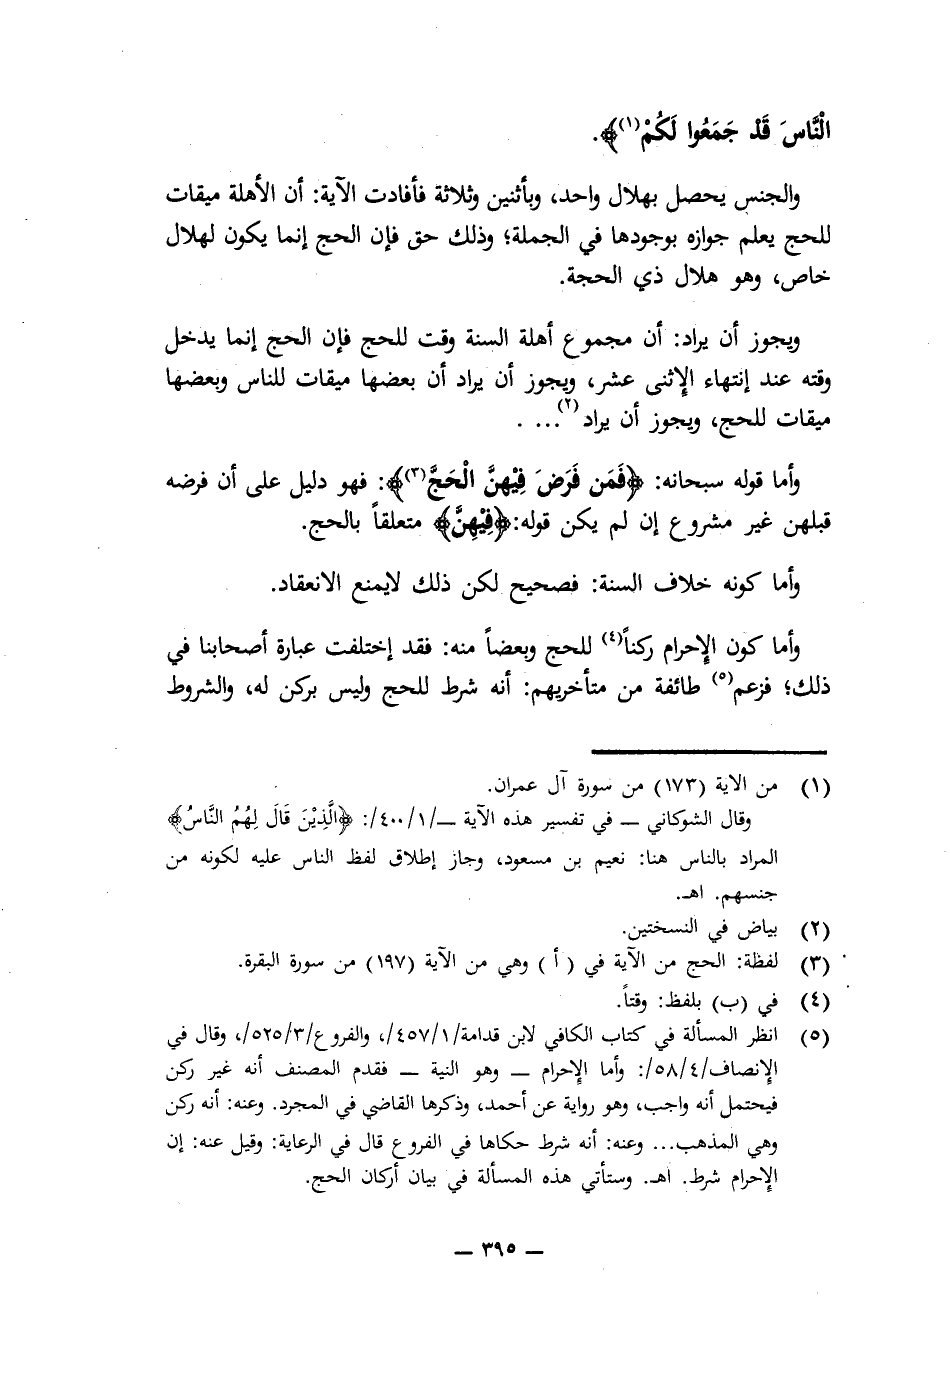 الْنَّاسَ قَدْ جَمَعُوا لَكُمْ(١)﴾.
والجنس يحصل بهلال واحد، وبأثنين وثلاثة فأفادت الآية: أن الأهلة ميقات
للحج يعلم جوازه بوجودها في الجملة؛ وذلك حق فإن الحج إنما يكون لهلال
خاص، وهو هلال ذي الحجة.
ويجوز أن يراد: أن مجموع أهلة السنة وقت للحج فإن الحج إنما يدخل
وقته عند إنتهاء الإثنى عشر، ويجوز أن يراد أن بعضها ميقات للناس وبعضها
ميقات للحج، ويجوز أن يراد(٢)... .
وأما قوله سبحانه: ﴿فَمَن فَرَضَ فِيْهِنَّ الْحَجَّ(٣)﴾: فهو دليل على أن فرضه
قبلهن غير مشروع إن لم يكن قوله:﴿فِيْهِنَّ﴾ متعلقاً بالحج.
وأما كونه خلاف السنة: فصحيح لكن ذلك لايمنع الانعقاد.
وأما كون الإحرام ركناً(٤) للحج وبعضاً منه: فقد إختلفت عبارة أصحابنا في
ذلك؛ فزعم(٥) طائفة من متأخريهم: أنه شرط للحج وليس بركن له، والشروط
(١) من الآية (١٧٣) من سورة آل عمران.
وقال الشوكاني ــ في تفسير هذه الآية ــ/٤٠٠/١/: ﴿الَّذِيْنَ قَالَ لِهُمُ النَّاسُ﴾
المراد بالناس هنا: نعيم بن مسعود، وجاز إطلاق لفظ الناس عليه لكونه من
جنسهم. اهـ.
(٢) بياض في النسختين.
(٣) لفظة: الحج من الآية في ( أ ) وهي من الآية (١٩٧) من سورة البقرة.
(٤) في (ب) بلفظ: وقتاً.
(٥) انظر المسألة في كتاب الكافي لابن قدامة/٤٥٧/١/، والفروع/٥٢٥/٣/، وقال في
الإنصاف/٥٨/٤/: وأما الإحرام ــ وهو النية ــ فقدم المصنف أنه غير ركن
فيحتمل أنه واجب، وهو رواية عن أحمد، وذكرها القاضي في المجرد. وعنه: أنه ركن
وهي المذهب... وعنه: أنه شرط حكاها في الفروع قال في الرعاية: وقيل عنه: إن
الإحرام شرط. اهـ. وستأتي هذه المسألة في بيان أركان الحج.
ــ ٣٩٥ ــ